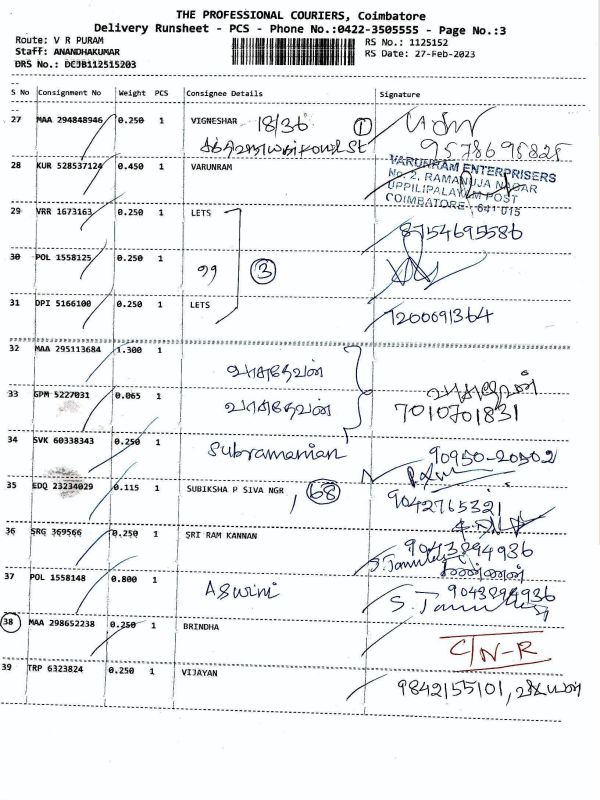 THE PROFESSIONAL COURIERS, Coimbatore
Delivery Runsheet - PCS - Phone No.:0422-3505555 - Page No.:3
Route: V R PURAM
RS No.: 1125152
Staff: ANANDHAKUMAR
RS Date: 27-Feb-2023
DRS No.: DCJB112515203
S No Consignment No Weight PCS Consignee Details Signature
27 MAA 294848946 0.250 1 VIGNESHAR 18/36 1
9578695825
28 KUR 528537124 0.450 1 VARUNRAM
VARUNRAM ENTERPRISERS
No. 2, RAMANUJA NAGAR
UPPILIPALAYAM POST
COIMBATORE - 641 015
29 VRR 1673163 0.250 1 LETS
8754695586
30 POL 1558125 0.250 1 99 3
31 DPI 5166100 0.250 1 LETS
7200091364
32 MAA 295113684 1.300 1 வாசுதேவன்
33 GPM 5227031 0.065 1 வாசுதேவன் வாசுதேவன்
7010701831
34 SVK 60338343 0.250 1 Subramanian 90950-20502
35 EDQ 23234029 0.115 1 SUBIKSHA P SIVA NGR , 68
9042765321
36 SRG 369566 0.250 1 SRI RAM KANNAN 9043894936
37 POL 1558148 0.800 1 Aswini 9043894936
38 MAA 298652238 0.250 1 BRINDHA
C/N-R
39 TRP 6323824 0.250 1 VIJAYAN
9842155101, விஜயன்